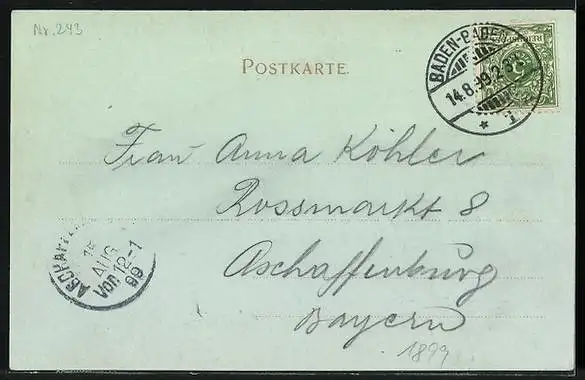 Nr. 243
POSTKARTE.
BADEN-BADEN
14.8.99.2-3N.
* 1.
Frau Anna Köhler
Rossmarkt 8
Aschaffenburg
Bayern
15
AUG
VOR 12-1
99
1899